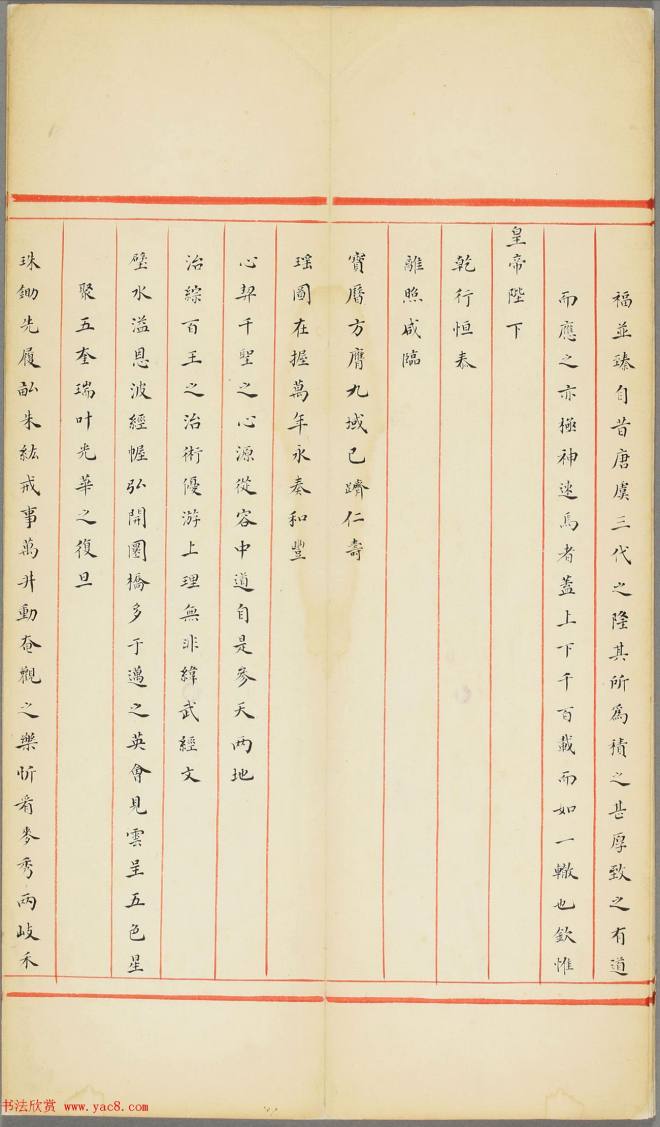 福並臻自昔唐虞三代之隆其所為積之甚厚致之有道
而應之亦極神速焉者蓋上下千百載而如一轍也欽惟
皇帝陛下
乾行恒泰
離照咸臨
寶曆方膺九域已躋仁壽
瑤圖在握萬年永奏和豐
心契千聖之心源從容中道自是參天兩地
治綜百王之治術優游上理無非緯武經文
璧水溢恩波經幄弘開圜橋多于邁之英會見雲呈五色星
聚五奎瑞叶光華之復旦
珠鋤先履畝朱紘戒事萬井動奄觀之樂忻看麥秀兩岐禾
书法欣赏 www.yac8.com